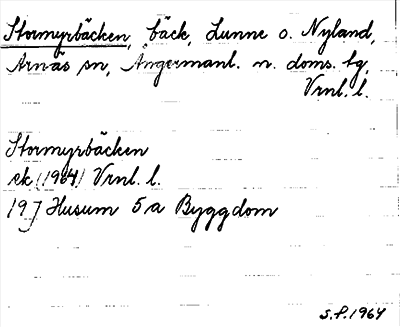 Stormyrbäcken, bäck, Lunne o. Nyland,
Arnäs sn, Ångermanl. n. doms. tg,
Vrnl. l.
Stormyrbäcken
ek (1964) Vrnl. l.
19J Husum 5a Byggdom
S.F. 1964